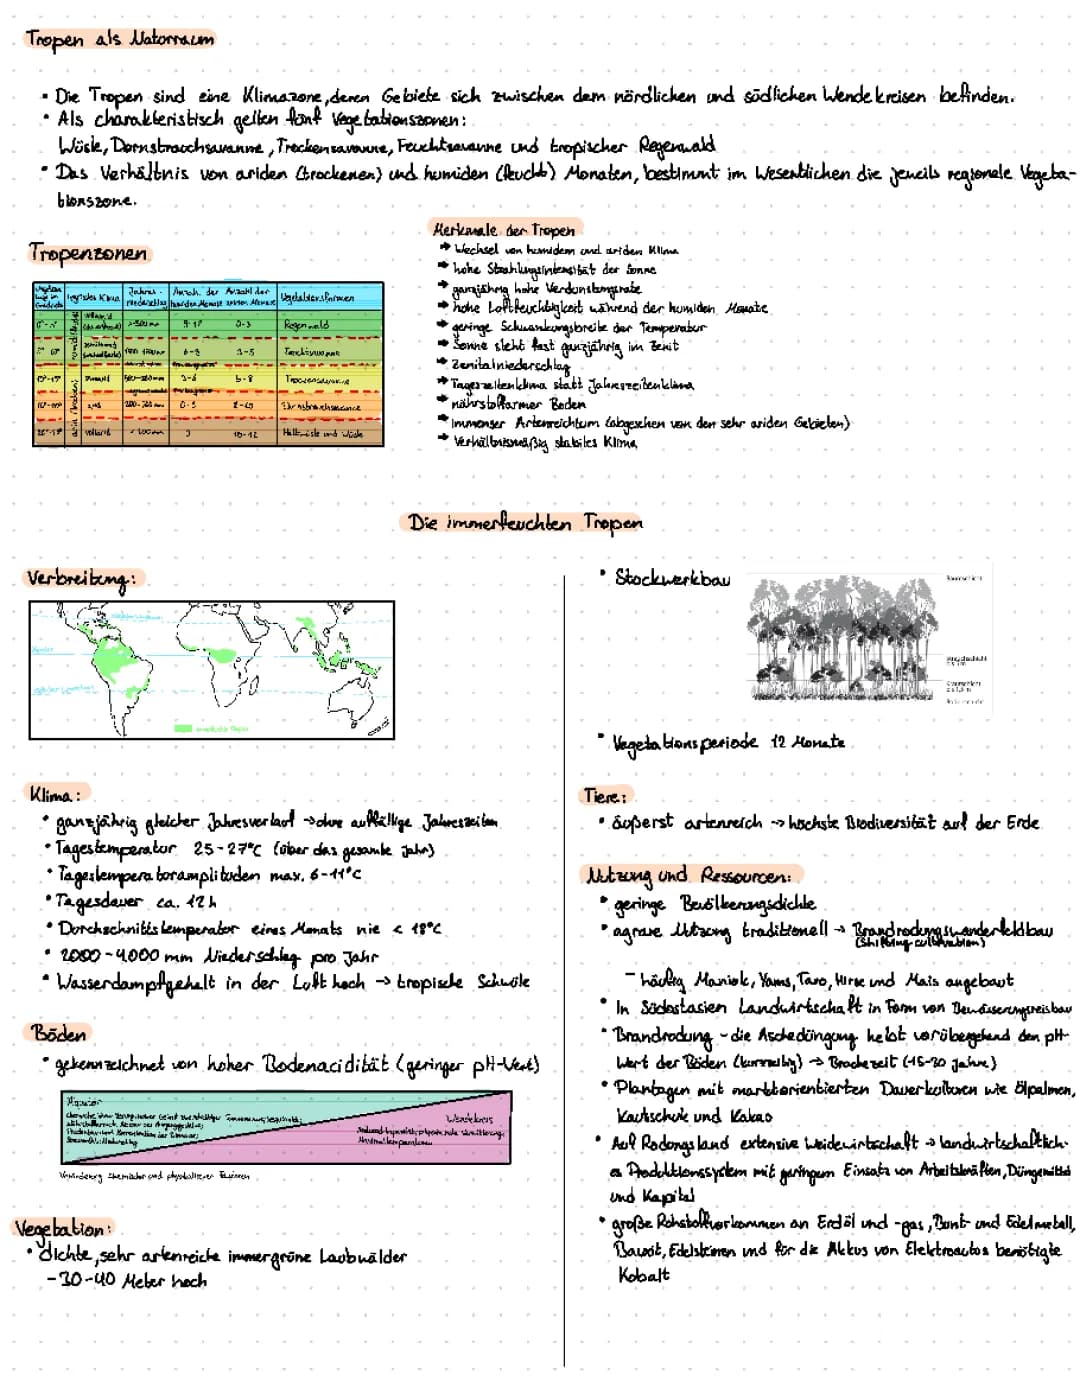 Tropen als Naturraum
• Die Tropen sind eine Klimazone, deren Gebiete sich zwischen dem nördlichen und südlichen Wendekreisen befinden.
• Als charakteristisch gelten fünf Vegetationszonen:
Wüste, Dornstrauchsavanne, Trockensavanne, Feuchtsavanne und tropischer Regenwald
• Das Verhältnis von ariden (trockenen) und humiden (feucht) Monaten, bestimmt im Wesentlichen die jeweils regionale Vegeta-
tionszone.
Tropenzonen
Jahres- Anzah. der Anzahl der Vegetationsformen
niederschlag humiden Monate ariden Monate
9-12 0-3 Regenwald
Feuchtsavanne
10°-15° 500-
Trockensavanne
Dornstrauchsavanne
vollarid 10-12 Halbwüste und Wüste
Merkmale der Tropen
➔ Wechsel von humidem und ariden Klima
➔ hohe Strahlungsintensität der Sonne
➔ ganzjährig hohe Verdunstungsrate
➔ hohe Luftfeuchtigkeit während der humiden Monate
➔ geringe Schwankungsbreite der Temperatur
➔ Sonne steht fast ganzjährig im Zenit
➔ Zenitalniederschlag
➔ Tageszeitenklima statt Jahreszeitenklima
➔ nährstoffarmer Boden
➔ immenser Artenreichtum (abgesehen von den sehr ariden Gebieten)
➔ Verhältnismäßig stabiles Klima
Die immerfeuchten Tropen
Verbreitung:
Äquator
Klima:
• ganzjährig gleicher Jahresverlauf → ohne auffällige Jahreszeiten
• Tagestemperatur 25-27°C (über das gesamte Jahr)
• Tagestemperaturamplituden max. 6-11°C
• Tagesdauer ca. 12h
• Durchschnittstemperatur eines Monats nie < 18°C
• 2000-4000 mm Niederschlag pro Jahr
• Wasserdampfgehalt in der Luft hoch → tropische Schwüle
Böden
• gekennzeichnet von hoher Bodenacidität (geringer pH-Wert)
Äquator
Wendekreis
Veränderung chemischer und physikalischer Faktoren
Vegetation:
• dichte, sehr artenreiche immergrüne Laubwälder
-30-40 Meter hoch
• Stockwerkbau
Baumschicht
Strauchschicht
Krautschicht
• Vegetationsperiode 12 Monate
Tiere:
• äußerst artenreich → höchste Biodiversität auf der Erde
Nutzung und Ressourcen:
• geringe Bevölkerungsdichte
• agrare Nutzung traditionell → Brandrodungswanderfeldbau
(Shifting cultivation)
- häufig Maniok, Yams, Taro, Hirse und Mais angebaut
• In Südostasien Landwirtschaft in Form von Bewässerungsreisbau
• Brandrodung - die Aschedüngung hebt vorübergehend den pH-
Wert der Böden (kurzzeitig) → Brachezeit (15-30 Jahre)
• Plantagen mit marktorientierten Dauerkulturen wie Ölpalmen,
Kautschuk und Kakao
• Auf Rodungsland extensive Weidewirtschaft → landwirtschaftlich-
es Produktionssystem mit geringem Einsatz von Arbeitskräften, Düngemittel
und Kapital
• große Rohstoffvorkommen an Erdöl und -gas, Bunt- und Edelmetall,
Bauxit, Edelsteinen und für die Akkus von Elektroautos benötigte
Kobalt